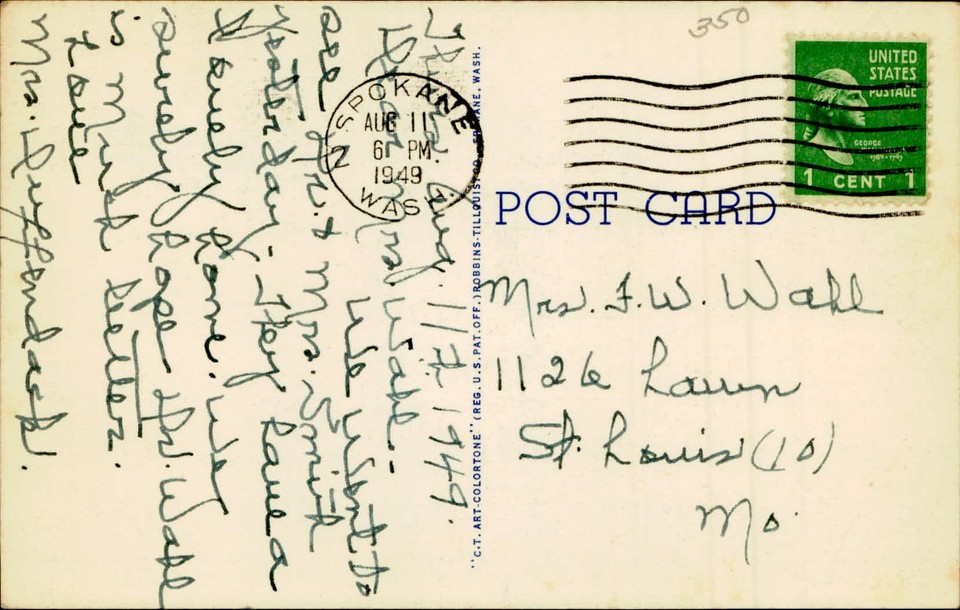 350
UNITED
STATES
POSTAGE
GEORGE
1 CENT 1
SPOKANE
AUG 11
6 PM
1949
WAS
POST CARD
Mrs. F. W. Wahl
1126 Lawn
St. Louis (10)
Mo.
"C.T. ART-COLORTONE" (REG. U.S. PAT. OFF.) ROBBINS-TILLQUIST CO., SPOKANE, WASH.
Thurs Aug. 11th 1949.
Dear Mrs Wahl-
We went to
see Mr. & Mrs. Smith
yesterday - They have a
lovely home. We
surely hope Mr. Wahl
is Much better.
Love
Mrs.